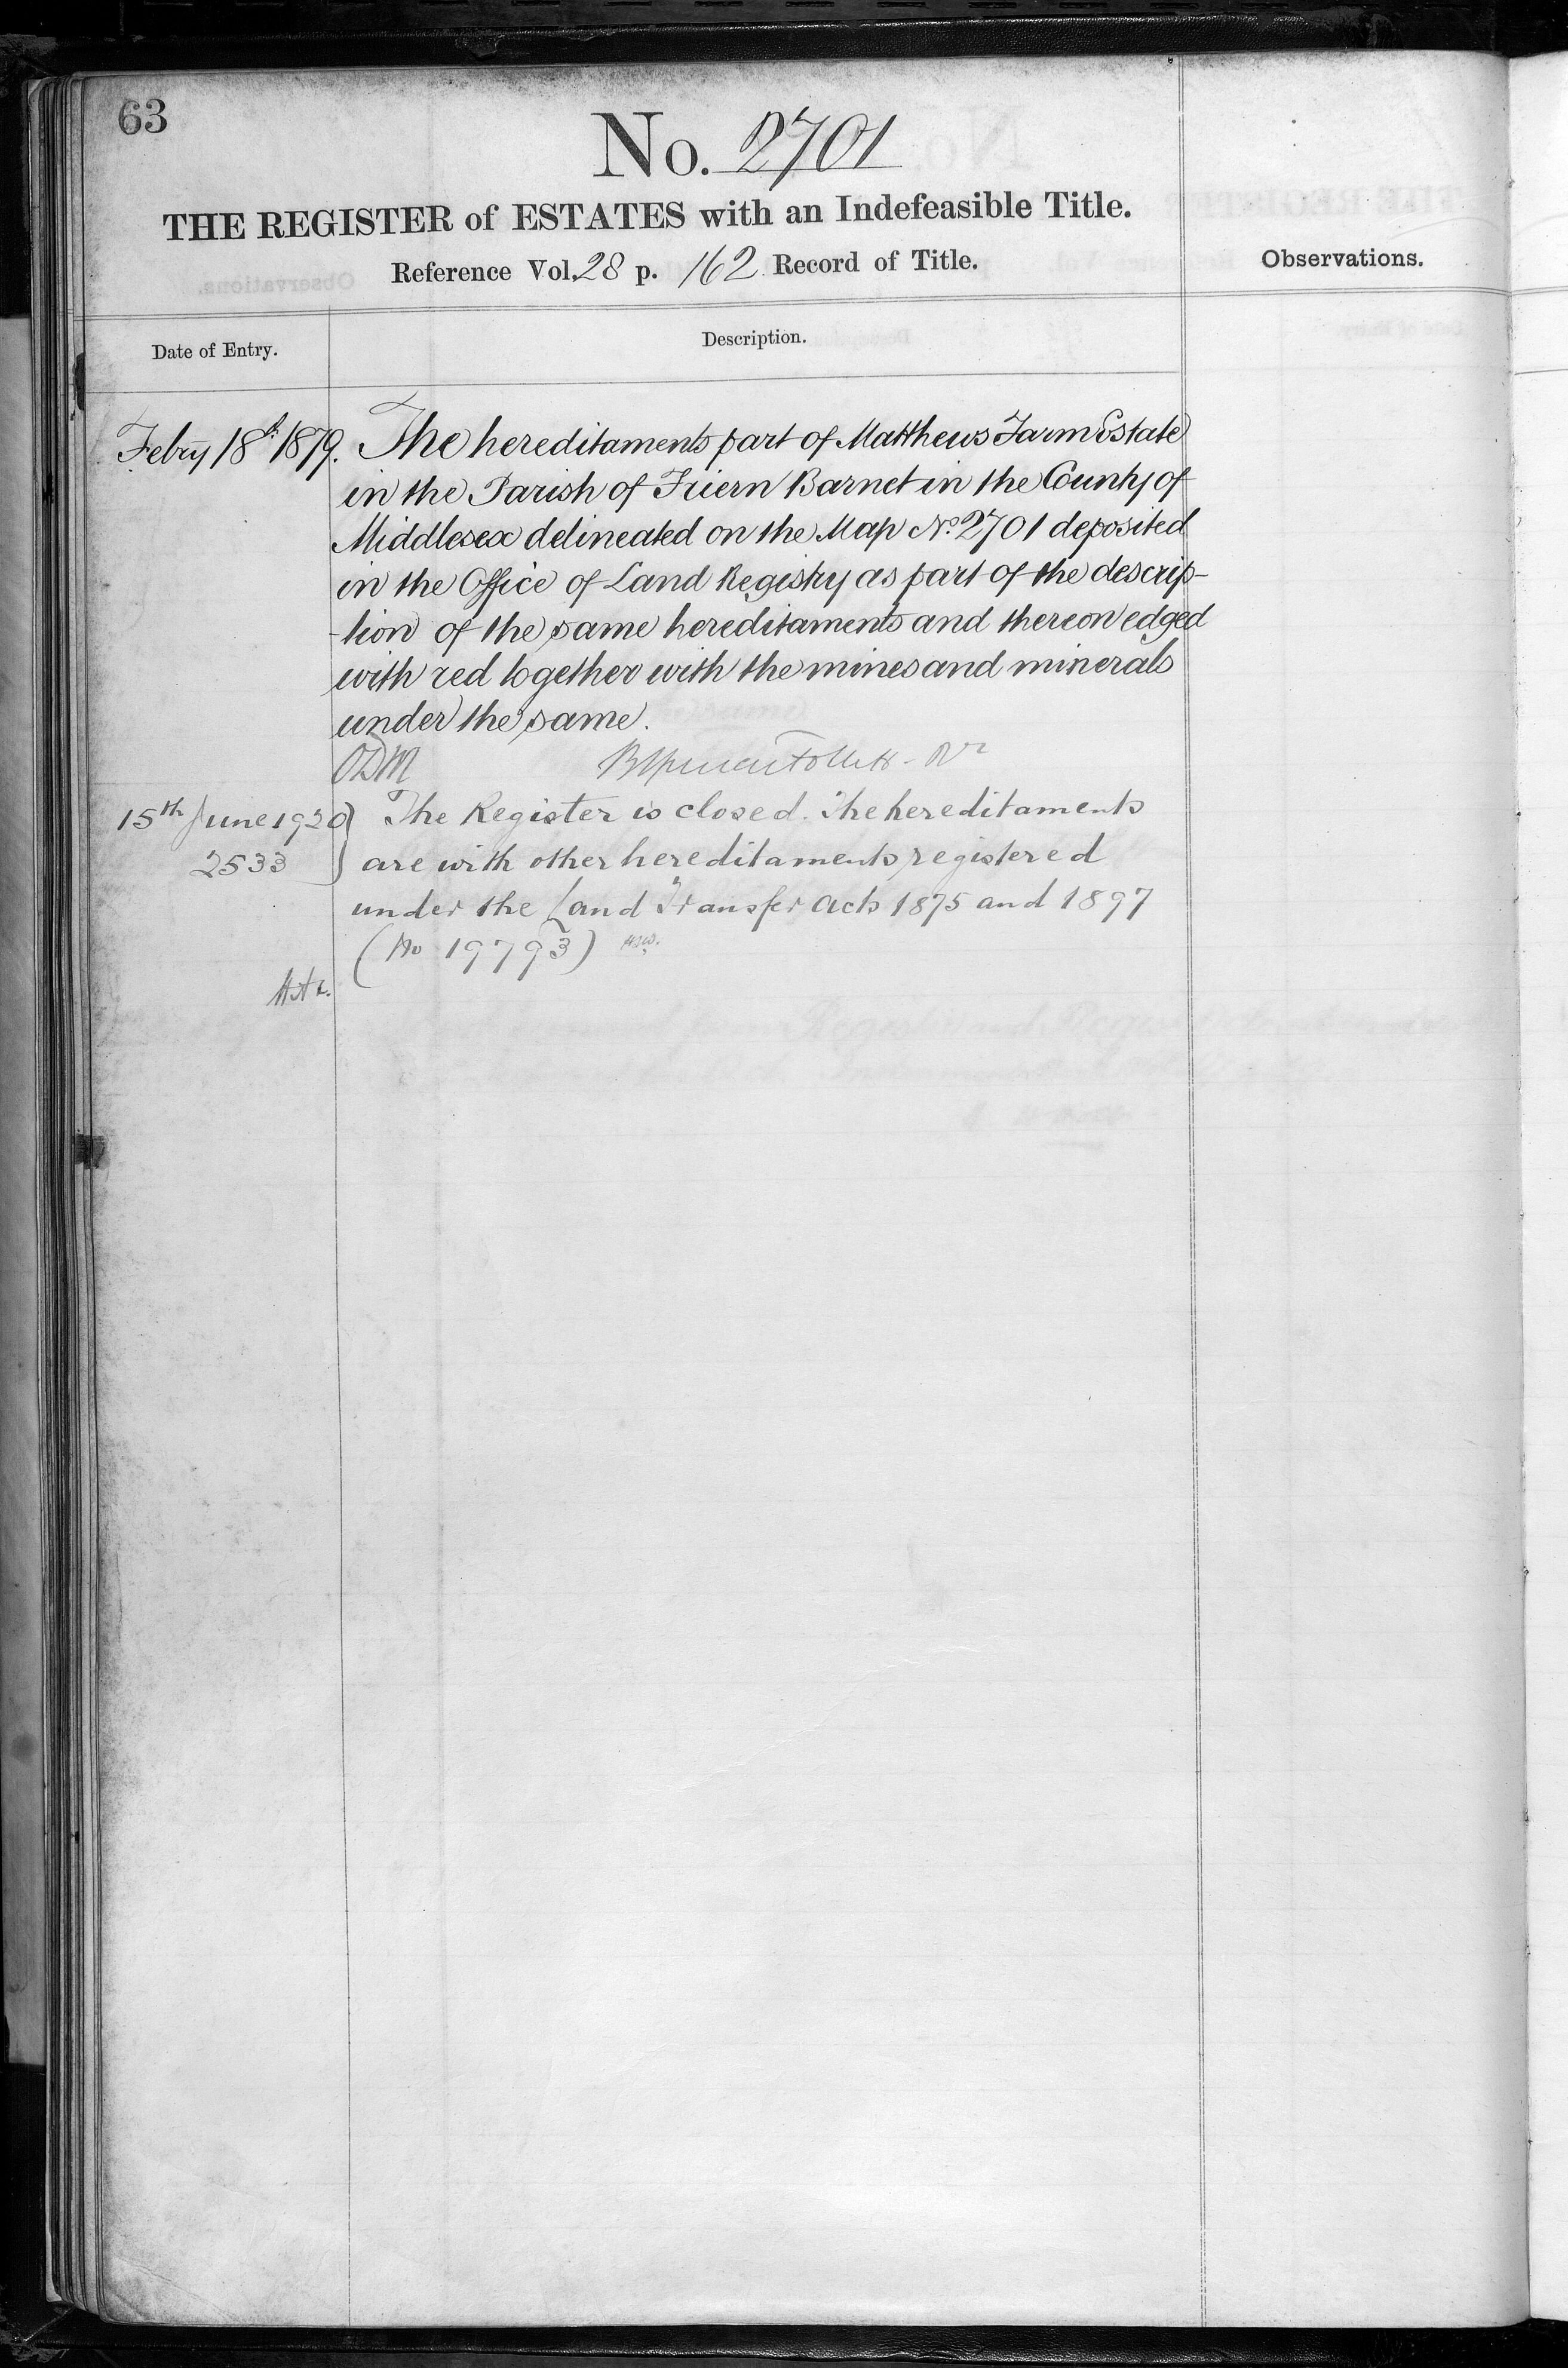 63
No. 2701
THE REGISTER of ESTATES with an Indefeasible Title.
Reference Vol. 28 p. 162 Record of Title.
Observations.
Date of Entry.
Description.
Febry 18th 1879. The hereditaments part of Matthews Farm Estate
in the Parish of Friern Barnet in the County of
Middlesex delineated on the Map No. 2701 deposited
in the Office of Land Registry as part of the descrip-
-tion of the same hereditaments and thereon edged
with red together with the mines and minerals
under the same.
ODM Follett Rr
15th June 1920 The Register is closed. The hereditaments
2533 are with other hereditaments registered
under the Land Transfer Acts 1875 and 1897
(No 19793)